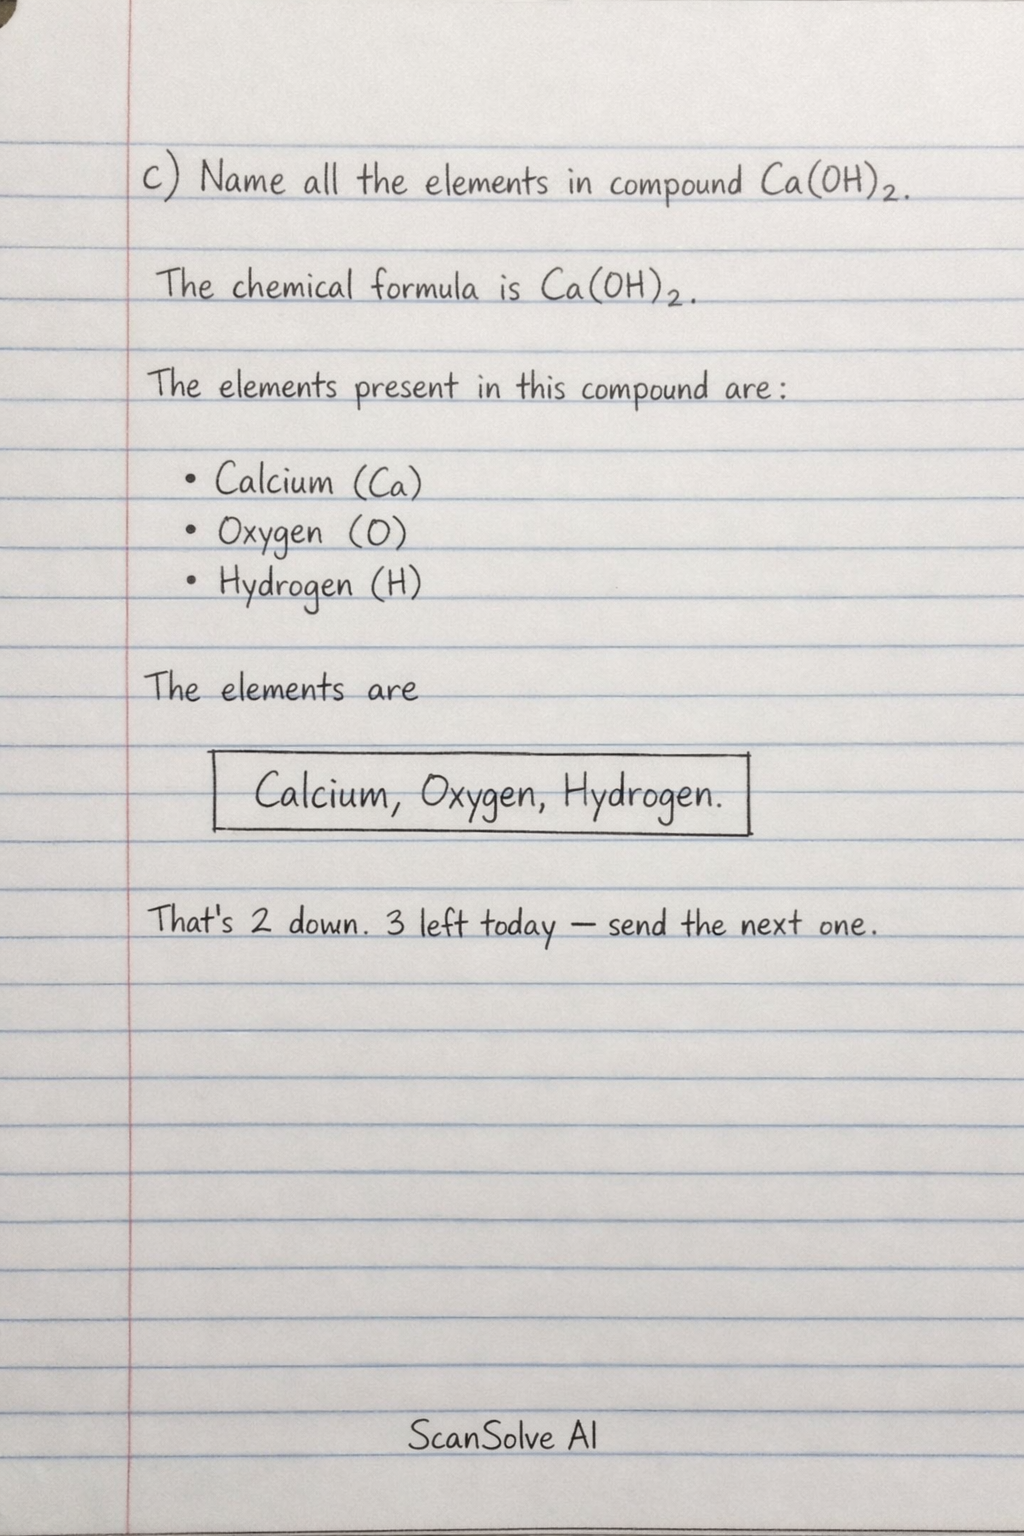 c) Name all the elements in compound Ca(OH)₂.
The chemical formula is Ca(OH)₂.
The elements present in this compound are:
• Calcium (Ca)
• Oxygen (O)
• Hydrogen (H)
The elements are
Calcium, Oxygen, Hydrogen.
That's 2 down. 3 left today — send the next one.
ScanSolve AI